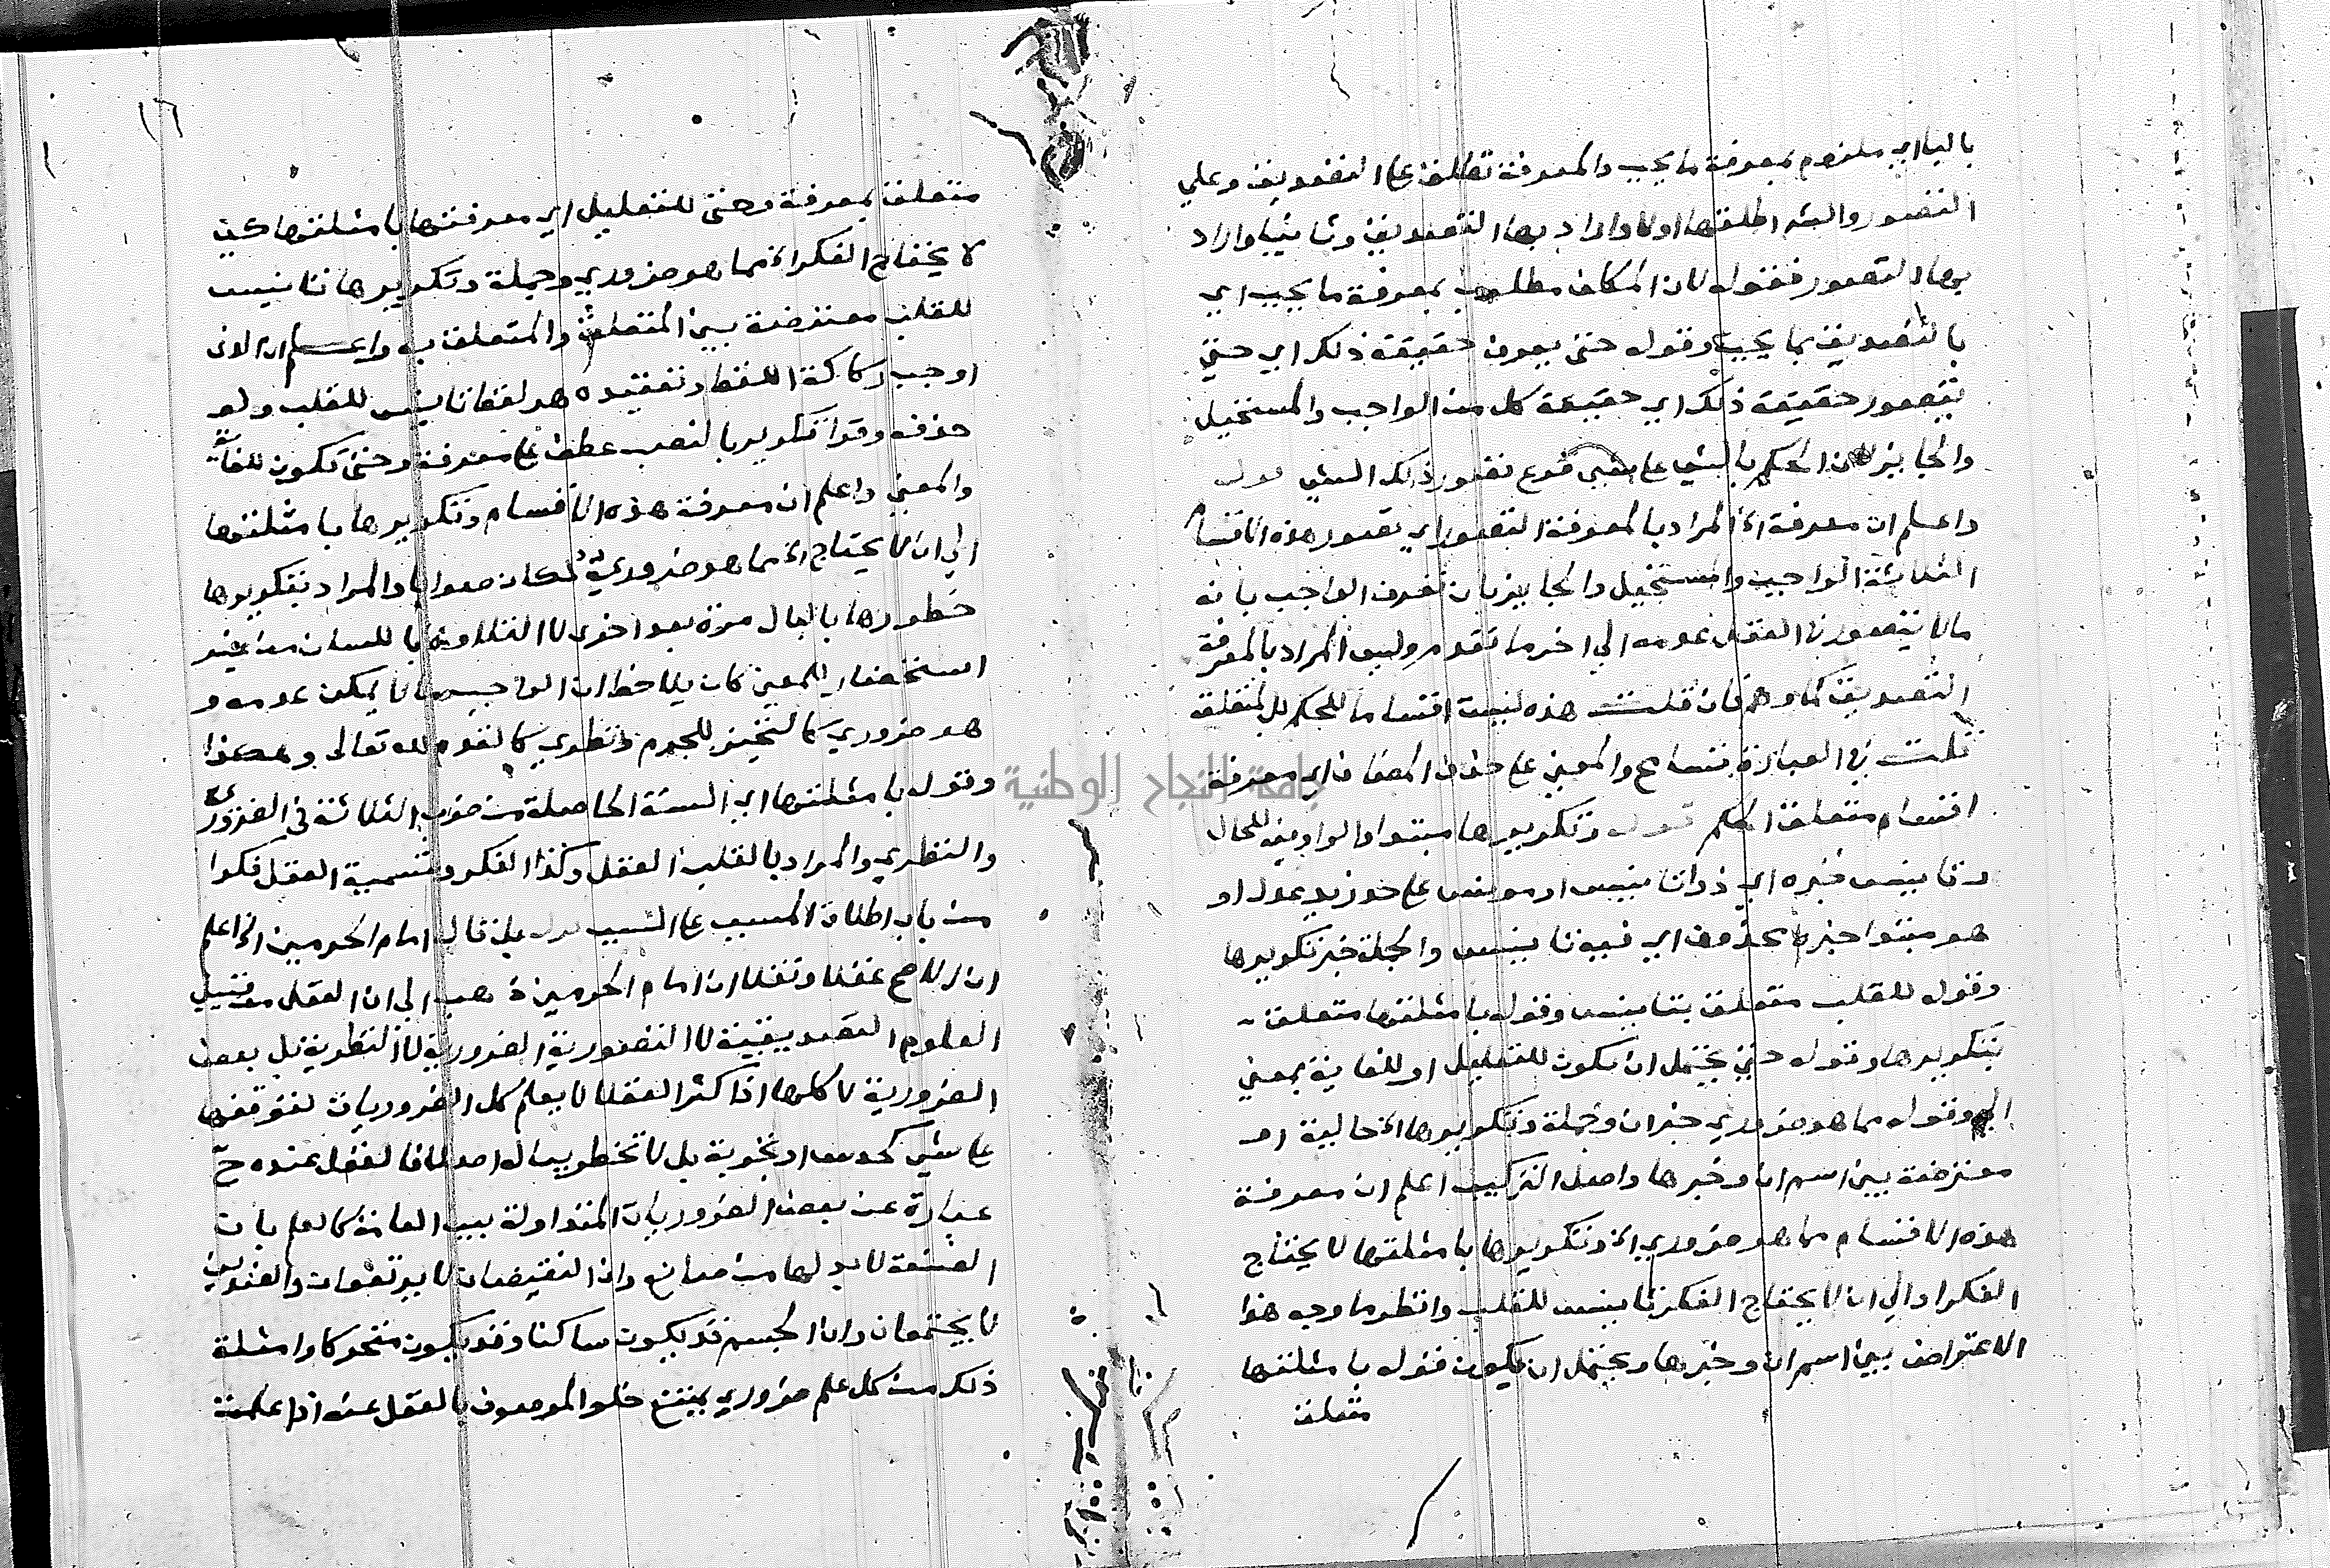 بالباء اي ملزوم بمعرفة ما يجب والمعرفة تطلق على التصديق وعلي
التصور والشه اطلقها اولا واراد بها التصديق وثانيا واراد
بها التصور فقوله لان المكلف مطلوب بمعرفة ما يجب اي
بالتصديق بما يجب وقوله حتى يعرف حقيقة ذلك اي حتى
يتصور حقيقة ذلك اي حقيقة كل من الواجب والمستحيل
والجايز لان الحكم بالشي على شي فرع تصور ذلك الشي قوله
واعلم ان معرفة الخ المراد بالمعرفة التصور اي تصور هذه الاقسام
الثلاثة الواجب والمستحيل والجايز بان تعرف الواجب بانه
ما لا يتصور في العقل عدمه الي اخر ما تقدم وليس المراد بالمعرفة
التصديق كما وهم فان قلت هذه ليست اقساما للحكم بل لمتعلقه
قلت في العبارة تسامح والمعني على حذف المضاف اي معرفة
اقسام متعلق الحكم قوله وتكريرها مبتدا والواو للحال
وتانيس خبره اي ذو تانيس او مونس على حد زيد عدل او
هو مبتدا خبره محذوف اي فيه تانيس والجملة خبر تكريرها
وقوله للقلب متعلق بتانيس وقوله بامثلتها متعلق
بتكريرها وقوله حتى يحتمل ان يكون للتعليل او للغاية بمعني
الى وقوله مما هو ضروري خبر ان وجملة وتكريرها الخ حالية او
معترضة بين اسم ان وخبرها واصل التركيب اعلم ان معرفة
هذه الاقسام مما هو ضروري الخ وتكريرها بامثلتها لا يحتاج
الفكر او الي ان لا يحتاج الفكر تانيس للقلب وانظر ما وجه هذا
الاعتراض بين اسم ان وخبرها ويحتمل ان يكون قوله بامثلتها
متعلق
١٦
متعلق بمعرفة وحتى للتعليل اي معرفتها بامثلتها كي
لا يحتاج الفكر الخ مما هو ضروري وجملة وتكريرها تانيس
للقلب معترضة بين المتعلق والمتعلق به واعلم ان الذي
اوجب ركاكة اللفظ وتعقيده هو لفظ تانيس للقلب ولو
حذفه وقرا تكرير بالنصب عطف على معرفة وحتى تكون للغاية
والمعني واعلم ان معرفة هذه الاقسام وتكريرها بامثلتها
الي ان لا يحتاج الخ مما هو ضروري لكان صوابا والمراد بتكريرها
خطورها بالبال مرة بعد اخرى لا التلاوة باللسان من غير
استحضار للمعني كان يلاحظ ان الواجب ما لا يمكن عدمه و
هو ضروري كالتحيز للجرم ونظري كالقدم لله تعالى وهكذا
وقوله بامثلتها اي الستة الحاصلة من ضرب الثلاثة في الضروري
والنظري والمراد بالقلب العقل وكذا الفكر وتسمية العقل فكرا
من باب اطلاق المسبب على السبب قوله بل قال امام الحرمين الخ اعلم
ان الاصح عقلا ونقلا ان امام الحرمين ذهب الى ان العقل من قبيل
العلوم التصديقية لا التصورية الضرورية لا النظرية بل بعض
الضرورية لا كلها اذ اكثر العقلا لا يعلم كل الضروريات لتوقفها
على شي كحدس او تجربة بل لا تخطر بباله اصلا فالعقل عنده ح
عبارة عن بعض الضروريات المتداولة بين العامة كالعلم بان
الصنعة لا بد لها من صانع وان النقيضان لا يرتفعان والضدين
لا يجتمعان وان الجسم قد يكون ساكنا وقد يكون متحركا وامثلة
ذلك من كل علم ضروري يمتنع خلو الموصوف بالعقل عنه اذا علمت
جامعة النجاح الوطنية